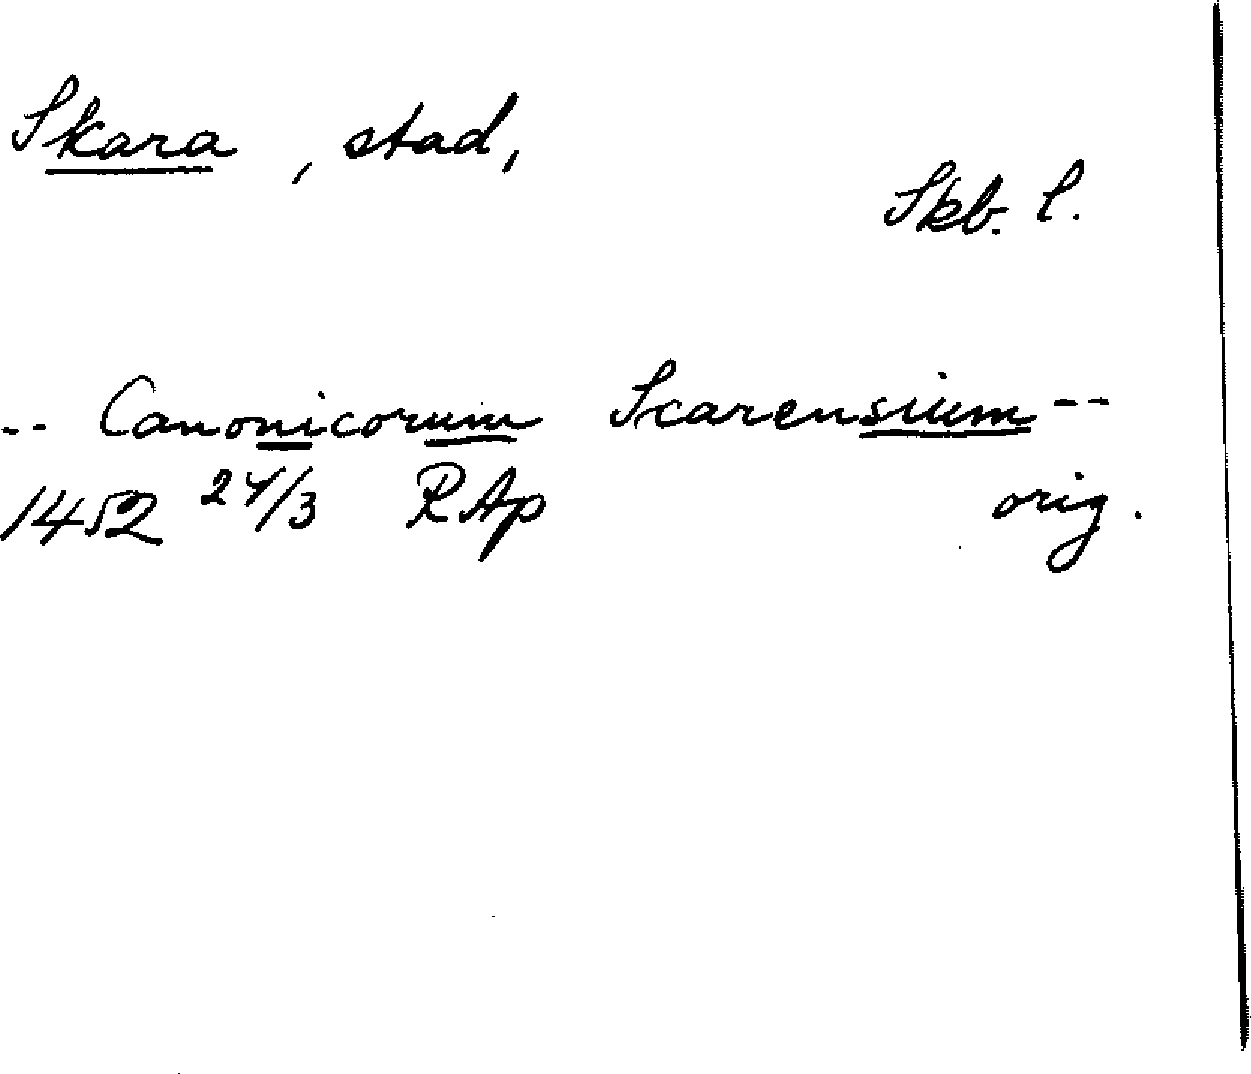 Skara, stad,
Skb. l.
-- Canonicorum Scarensium --
1452 24/3 RAp orig.